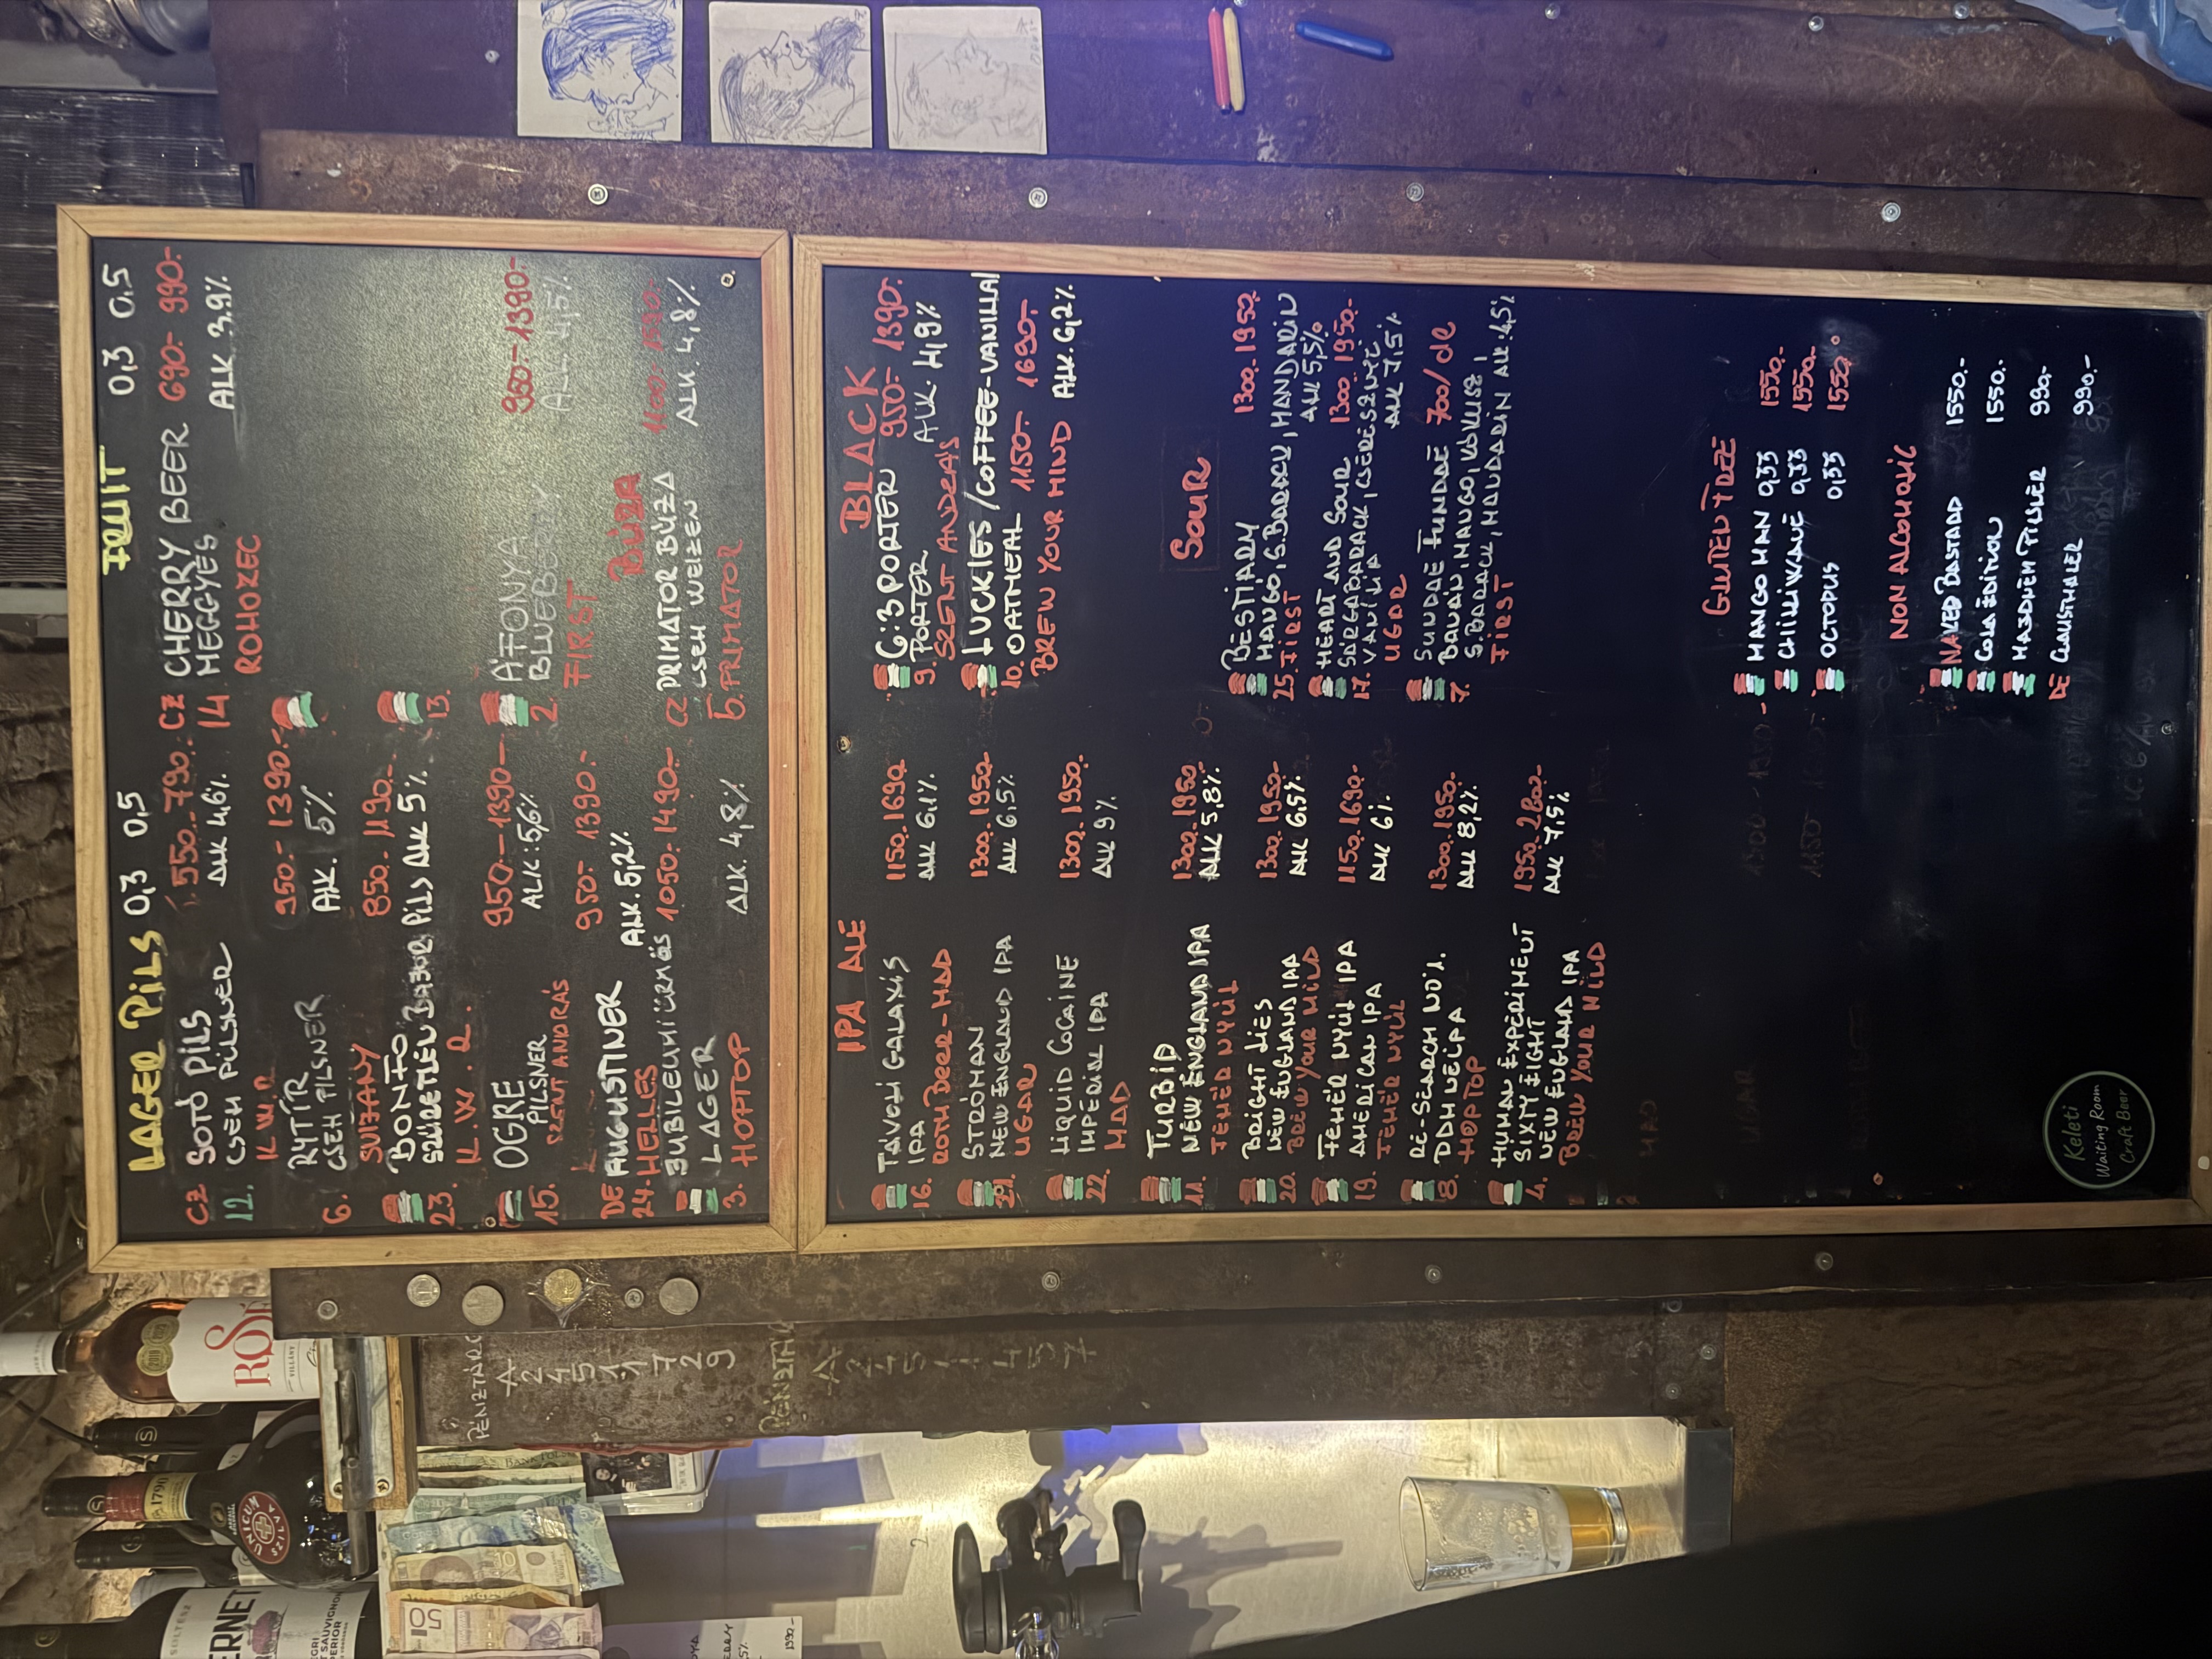 LAGER PILS 0,3 0,5
CZ SOTÓ PILS 550.- 790.-
12. CSEH PILSNER ALK 4,6%
K.W.R
RYTÍŘ 950.- 1390.-
6. CSEH PILSNER ALK. 5%
SUIJANY
BONTO 850.- 1190.-
23. SZŰRETLEN BAJOR PILS ALK 5%
K.W.R.
OGRE 950.- 1390.-
15. PILSNER ALK. 5,6%
SZENT ANDRÁS
DE AUGUSTINER 950.- 1390.-
24. HELLES ALK. 5,2%
JUBILEUMI ÜRMÖS 1050.- 1490.-
LAGER
3. HOPTOP ALK. 4,8%
FRUIT 0,3 0,5
CZ CHERRY BEER 690.- 990.-
14 MEGGYES ALK 3.9%
ROHOZEC
13.
ÁFONYA 950.- 1390.-
2. BLUEBERRY ALK. 4,5%
FIRST
BÚZA
CZ PRIMATOR BÚZA 1100.- 1590.-
CSEH WEIZEN ALK. 4,8%
5. PRIMATOR
IPA ALE
TÁVOLI GALAXIS 1150.- 1690.-
16. IPA ALK 6,1%
ROTH BEER-MAD
STRÓMAN 1300.- 1950.-
21. NEW ENGLAND IPA ALK 6,5%
UGAR
LIQUID COCAINE 1300.- 1950.-
22. IMPERIAL IPA ALK 9%
MAD
TURBID 1300.- 1950.-
11. NEW ENGLAND IPA ALK 5,8%
FEHÉR NYÚL
BRIGHT LIES 1300.- 1950.-
20. NEW ENGLAND IPA ALK 6,5%
BREW YOUR MIND
FEHÉR NYÚL IPA 1150.- 1690.-
19. AMERICAN IPA ALK 6%
FEHÉR NYÚL
RE-SEARCH NO1. 1300.- 1950.-
8. DDH NEIPA ALK 8,2%
HOPTOP
HUMAN EXPERIMENT 1950.- 2800.-
4. SIXTY EIGHT ALK 7,5%
NEW ENGLAND IPA
BREW YOUR MIND
BLACK
6:3 PORTER 950.- 1390.-
9. PORTER ALK. 4,9%
SZENT ANDRÁS
LUCKIES /COFFEE-VANILLA/
10. OATMEAL 1150.- 1690.-
BREW YOUR MIND ALK. 6,2%
SOUR
BESTIARY 1300.- 1950.-
MANGO, S.BARACK, MANDARIN
25. FIRST ALK 5,5%
HEART AND SOUR 1300.- 1950.-
SÁRGABARACK, CSERESZNYE,
17. VANÍLIA ALK 7,5%
UGAR
SUNDAE FUNDAE 700/dl
BANÁN, MANGO, KÓKUSZ,
7. S.BARACK, MANDARIN ALK. 4,5%
FIRST
GLUTEN FREE
MANGO MAN 0,33 1550.-
CHILLIWAVE 0,33 1550.-
OCTOPUS 0,33 1550.-
NON ALCOHOLIC
NAKED BASTARD 1550.-
COLA EDITION 1550.-
MASDNÉM PILSNER 990.-
DE CLAUSTHALER 990.-
Keleti
Waiting Room
Craft Beer
ROSÉ
VILLÁNY
UNICUM
SZILVA
1790
PÉNZTÁRC
A
2
4
5
11
7
2
9
PÉNZTÁR
A
2
4
5
1
4
5
7
SAUVIGNON
50
10
1390.-